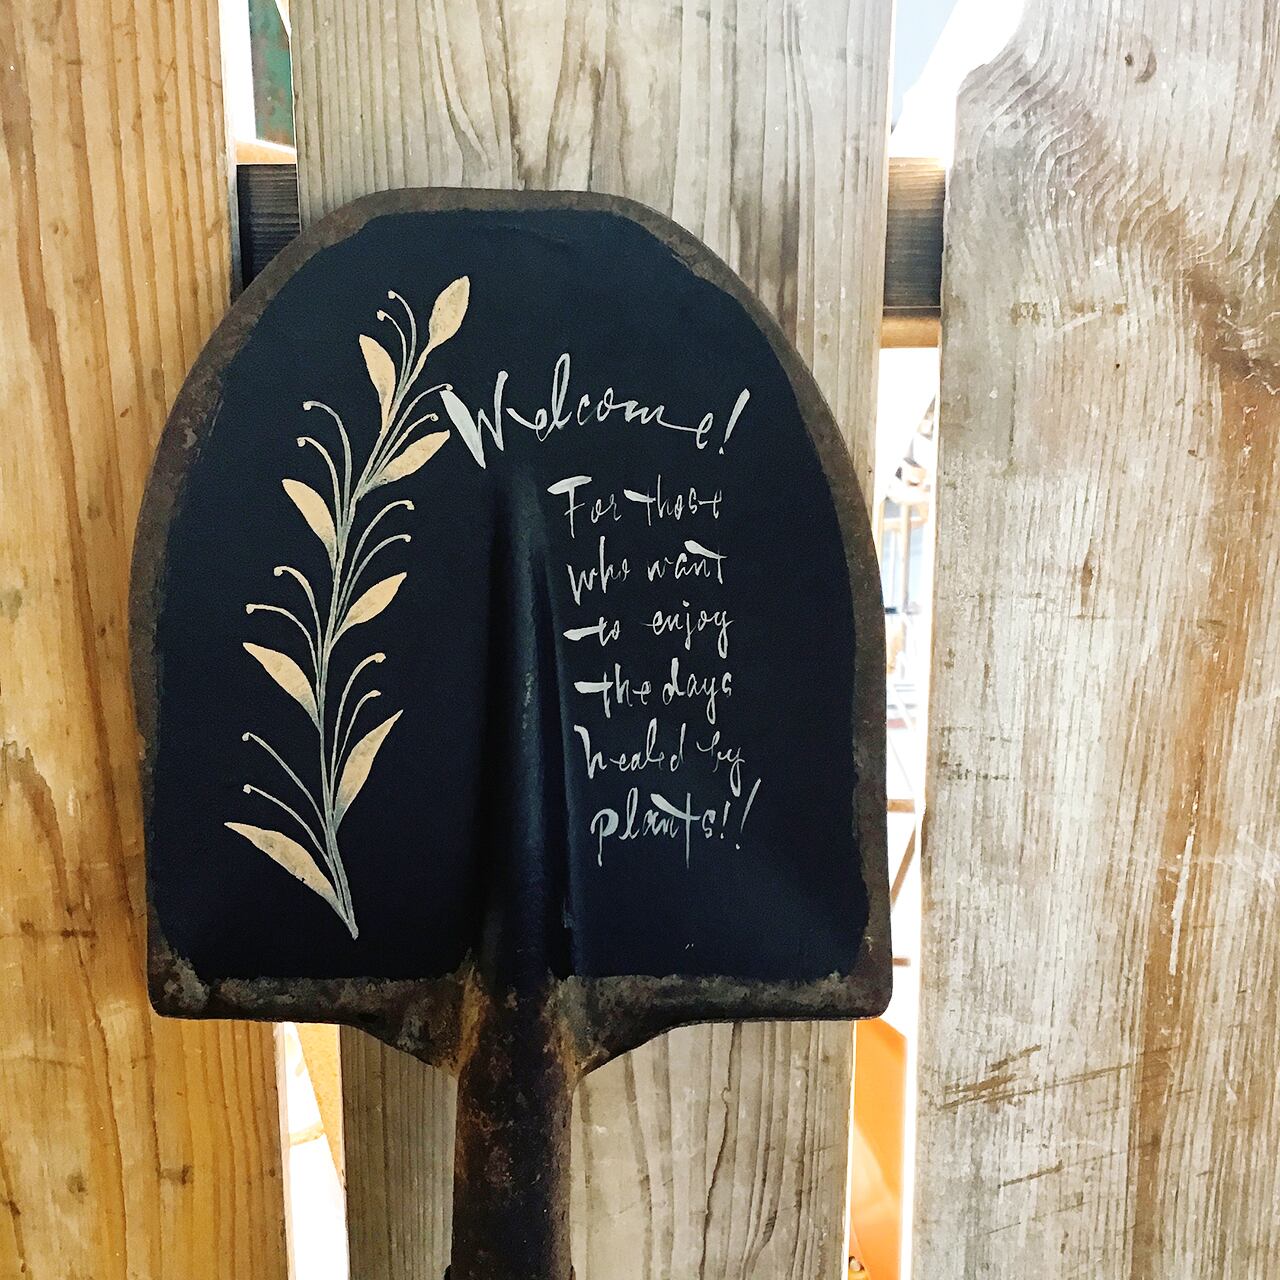 Welcome!
For those
who want
to enjoy
the days
healed by
plants!!